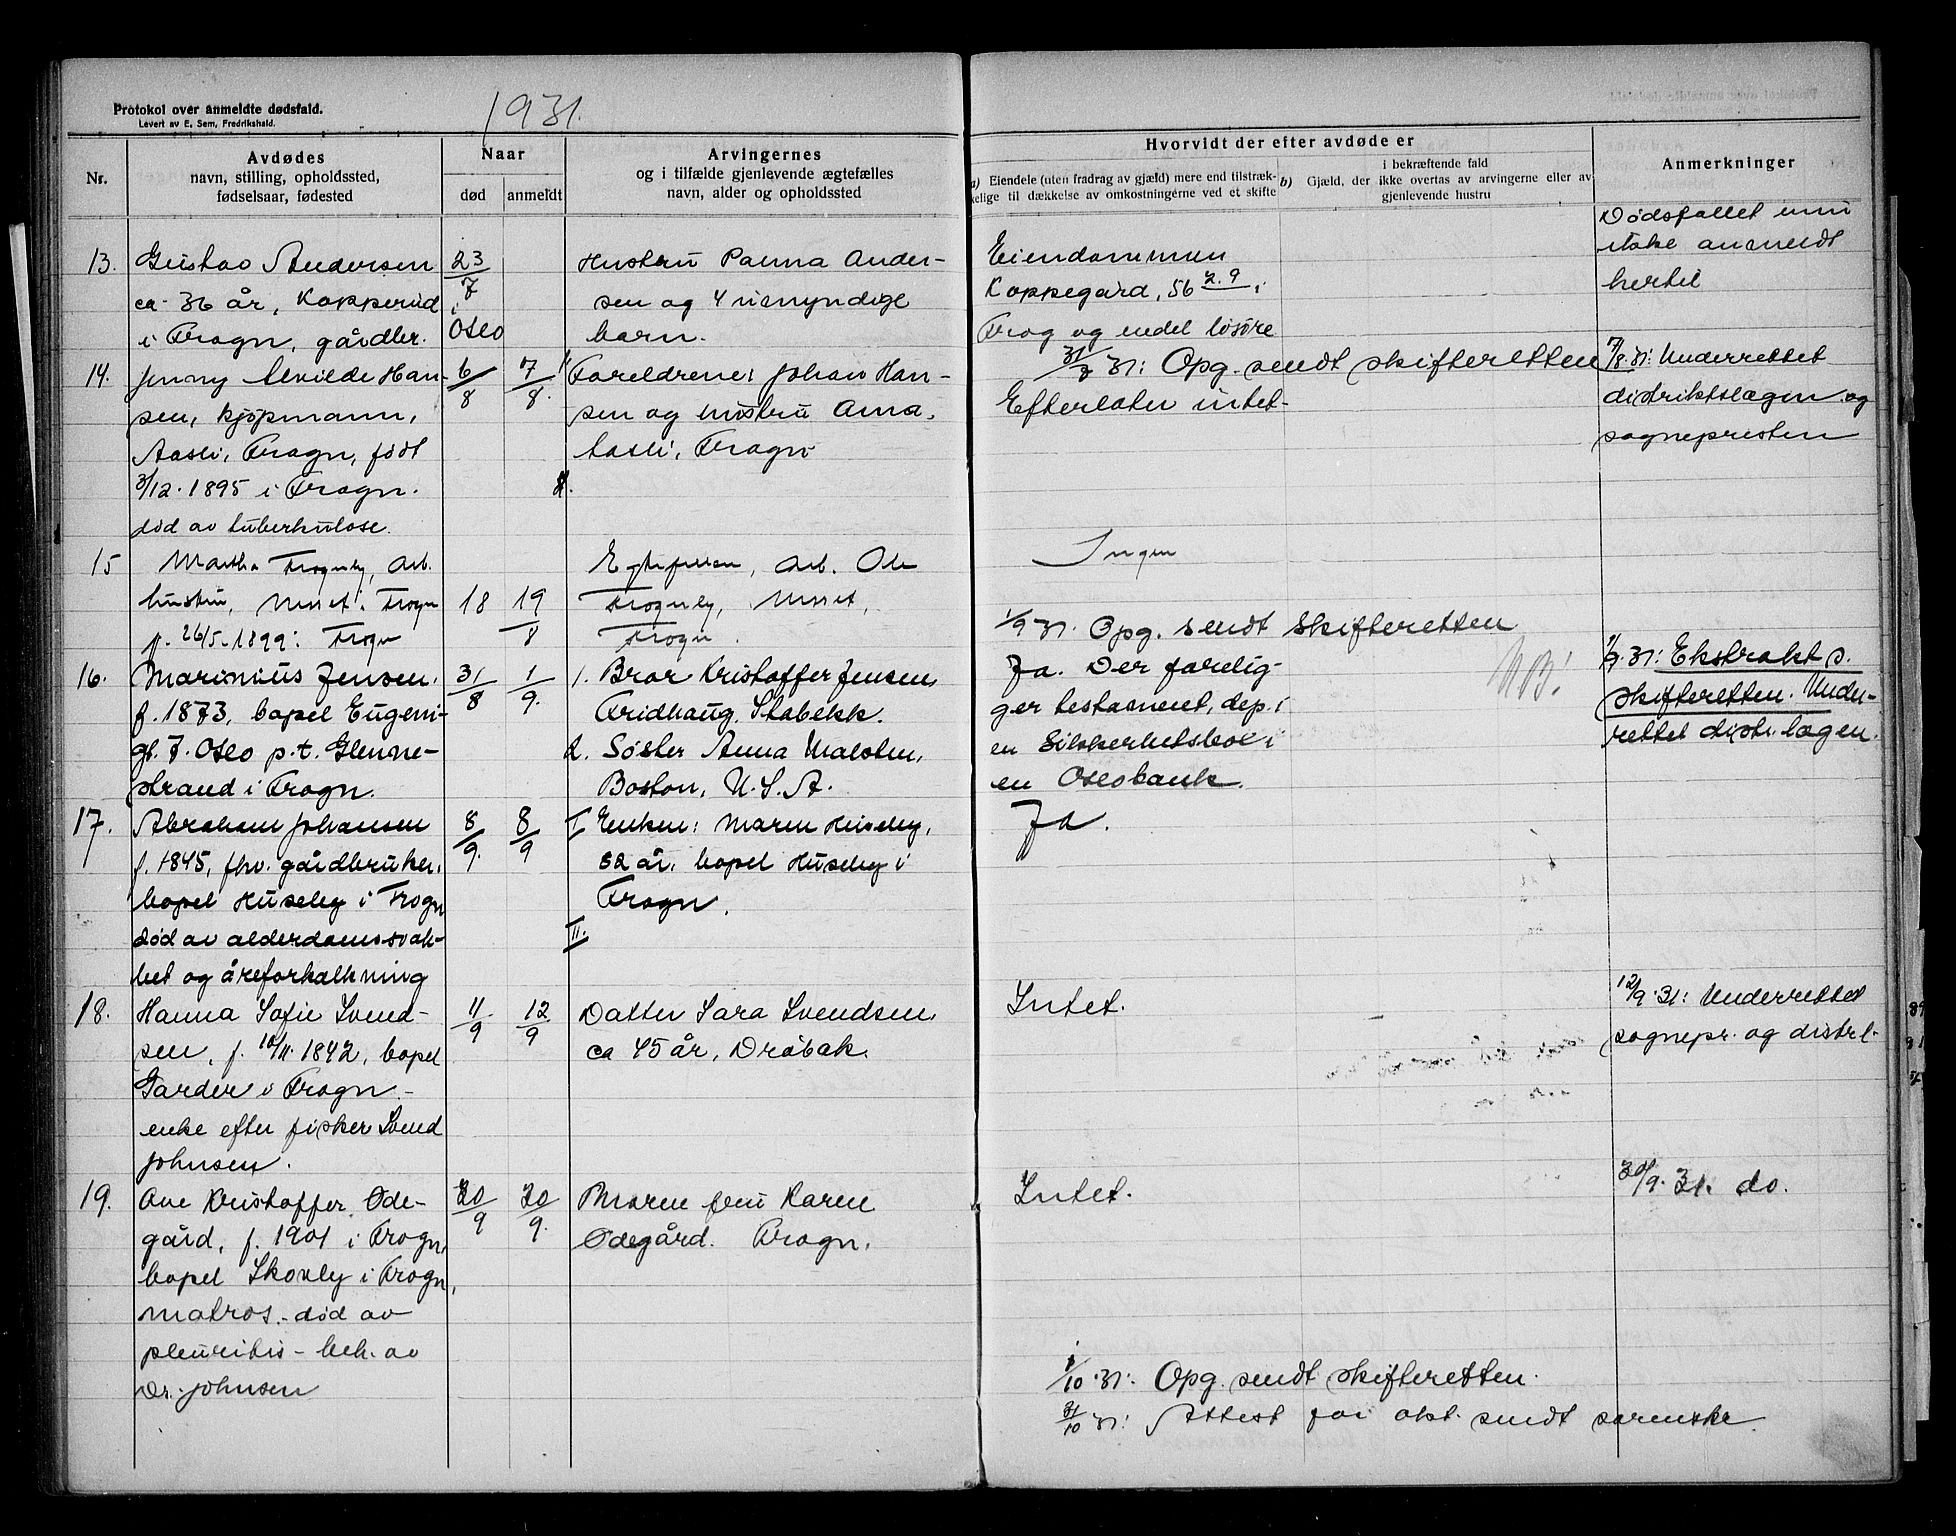 Protokol over anmeldte dødsfald.
Levert av E. Sem, Fredrikshald.
1931.
Nr.
Avdødes
navn, stilling, opholdssted,
fødselsaar, fødested
Naar
død
anmeldt
Arvingernes
og i tilfælde gjenlevende ægtefælles
navn, alder og opholdssted
Hvorvidt der efter avdøde er
a) Eiendele (uten fradrag av gjæld) mere end tilstræk-
kelige til dækkelse av omkostningerne ved et skifte
b) Gjæld, der i bekræftende fald
ikke overtas av arvingerne eller av
gjenlevende hustru
Anmerkninger
13.
Gustav Andersen
ca. 36 år, Kopperud
i Frogn, gårdbr.
23/7
i
Oslo
Hustru Panna Ander-
sen og 4 umyndige
barn.
Eiendommen
Koppegård, 56 2.9 i
Frog og endel løsøre
31/7 31: Opg. sendt skifteretten
Dødsfallet
ikke anmeldt
hertil
14.
Jenny Alvilde Han-
sen, kjøpmann,
Aasli, Frogn, født
3/12. 1895 i Frogn.
død av tuberkulose.
6/8
7/8.
Foreldrene: Johan Han-
sen og hustru Anna,
Aasli, Frogn
Efterlater intet.
7/8.31: Underrettet
distriktslægen og
sognepresten
15
Martha Frognby, Arb.
hustru, Nesset i Frogn
f. 26/5-1899: Frogn
18
19/8
Egtefellen, Arb. Ole
Frognby, Nesset,
Frogn.
Ingen
1/9 31. Opg. sendt skifteretten
16.
Marinius Jensen.
f. 1873, bopel Eugeni-
gt. 7. Oslo p.t. Glenne-
strand i Frogn.
31/8
1/9.
1. Bror Kristoffer Jensen,
Fridhaug, Stabekk.
2. Søster Anna Malvten,
Boston, U.S.A.
Ja. Der forelig-
ger testament, dep. i
en Sikkerhetsbox i
en Oslobank.
NB!
1/9.31: Ekstrakt s.
skifteretten. Under-
rettet distr. lægen.
17.
Abraham Johansen
f. 1845, fhv. gårdbruker,
bopel Huseby i Frogn
død av alderdomssvak-
het og åreforkalkning
8/9.
8/9
I Enken: Maren Huseby,
82 år, bopel Huseby i
Frogn.
II.
Ja.
18.
Hanna Sofie Svend-
sen, f. 10/11. 1842, bopel
Garder i Frogn.-
enke efter fisker Svend
Johnsen.
11/9
12/9
Datter Sara Svendsen,
ca 45 år, Drøbak.
Intet.
12/9.31: Underrettet
sognepr. og distr.l.
19.
Ove Kristoffer Øde-
gård, f. 1901 i Frogn,
bopel Skovly i Frogn,
matros.-død av
pleuritis - beh. av
Dr. Johnsen
20/9
20/9.
Moren fru Karen
Ødegård. Frogn.
Intet.
20/9.31. do.
1/10.31: Opg. sendt skifteretten.
31/10 31: Attest for okt. sendt sorenskr